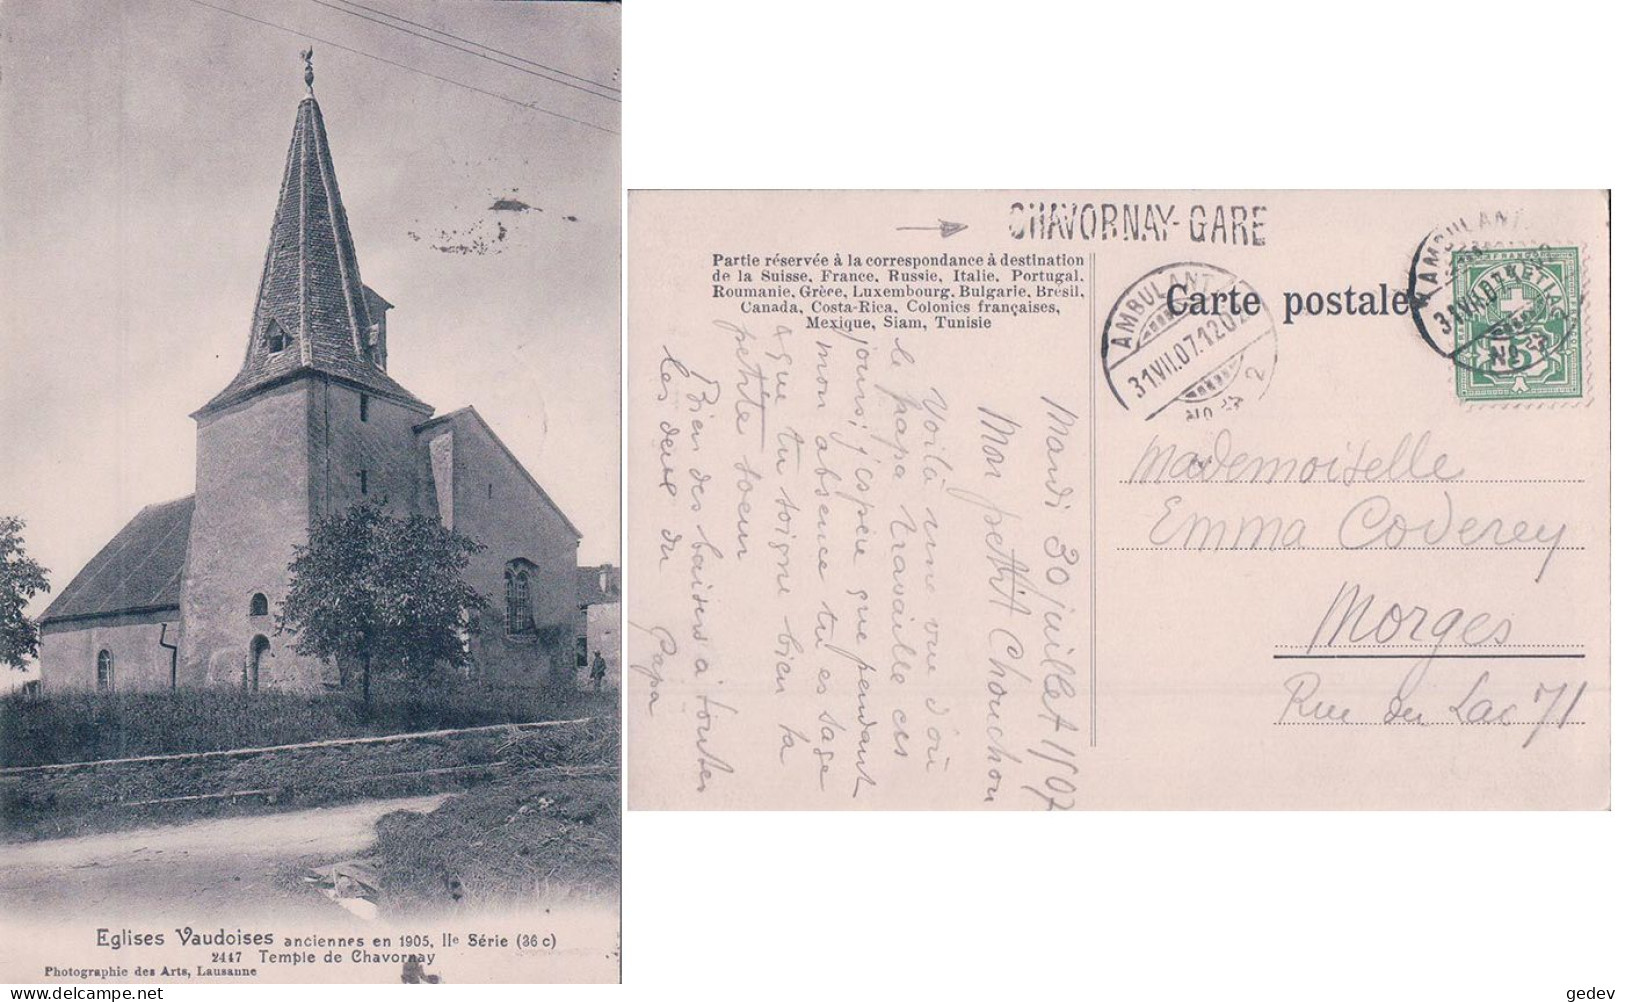 Eglises Vaudoises anciennes en 1905, IIe Série (36 c)
2447 Temple de Chavornay
Photographie des Arts, Lausanne
CHAVORNAY-GARE
Partie réservée à la correspondance à destination
de la Suisse, France, Russie, Italie, Portugal,
Roumanie, Grèce, Luxembourg, Bulgarie, Brésil,
Canada, Costa-Rica, Colonies françaises,
Mexique, Siam, Tunisie
Carte postale
AMBULANT
31.VII.07.12
No 23
2
AMBULANT
31.VII.07
No 23
FRANCO
5
Mademoiselle
Emma Coderey
Morges
Rue du Lac 71
Mardi 30 juillet 1907
Mon petit Chouchou
Voilà une vue d'où
le papa travaille ces
jours, j'espère que pendant
mon absence tu es sage
que tu soigne bien ta
petite soeur
Bien des baisers à toutes
les deux du Papa
gedev